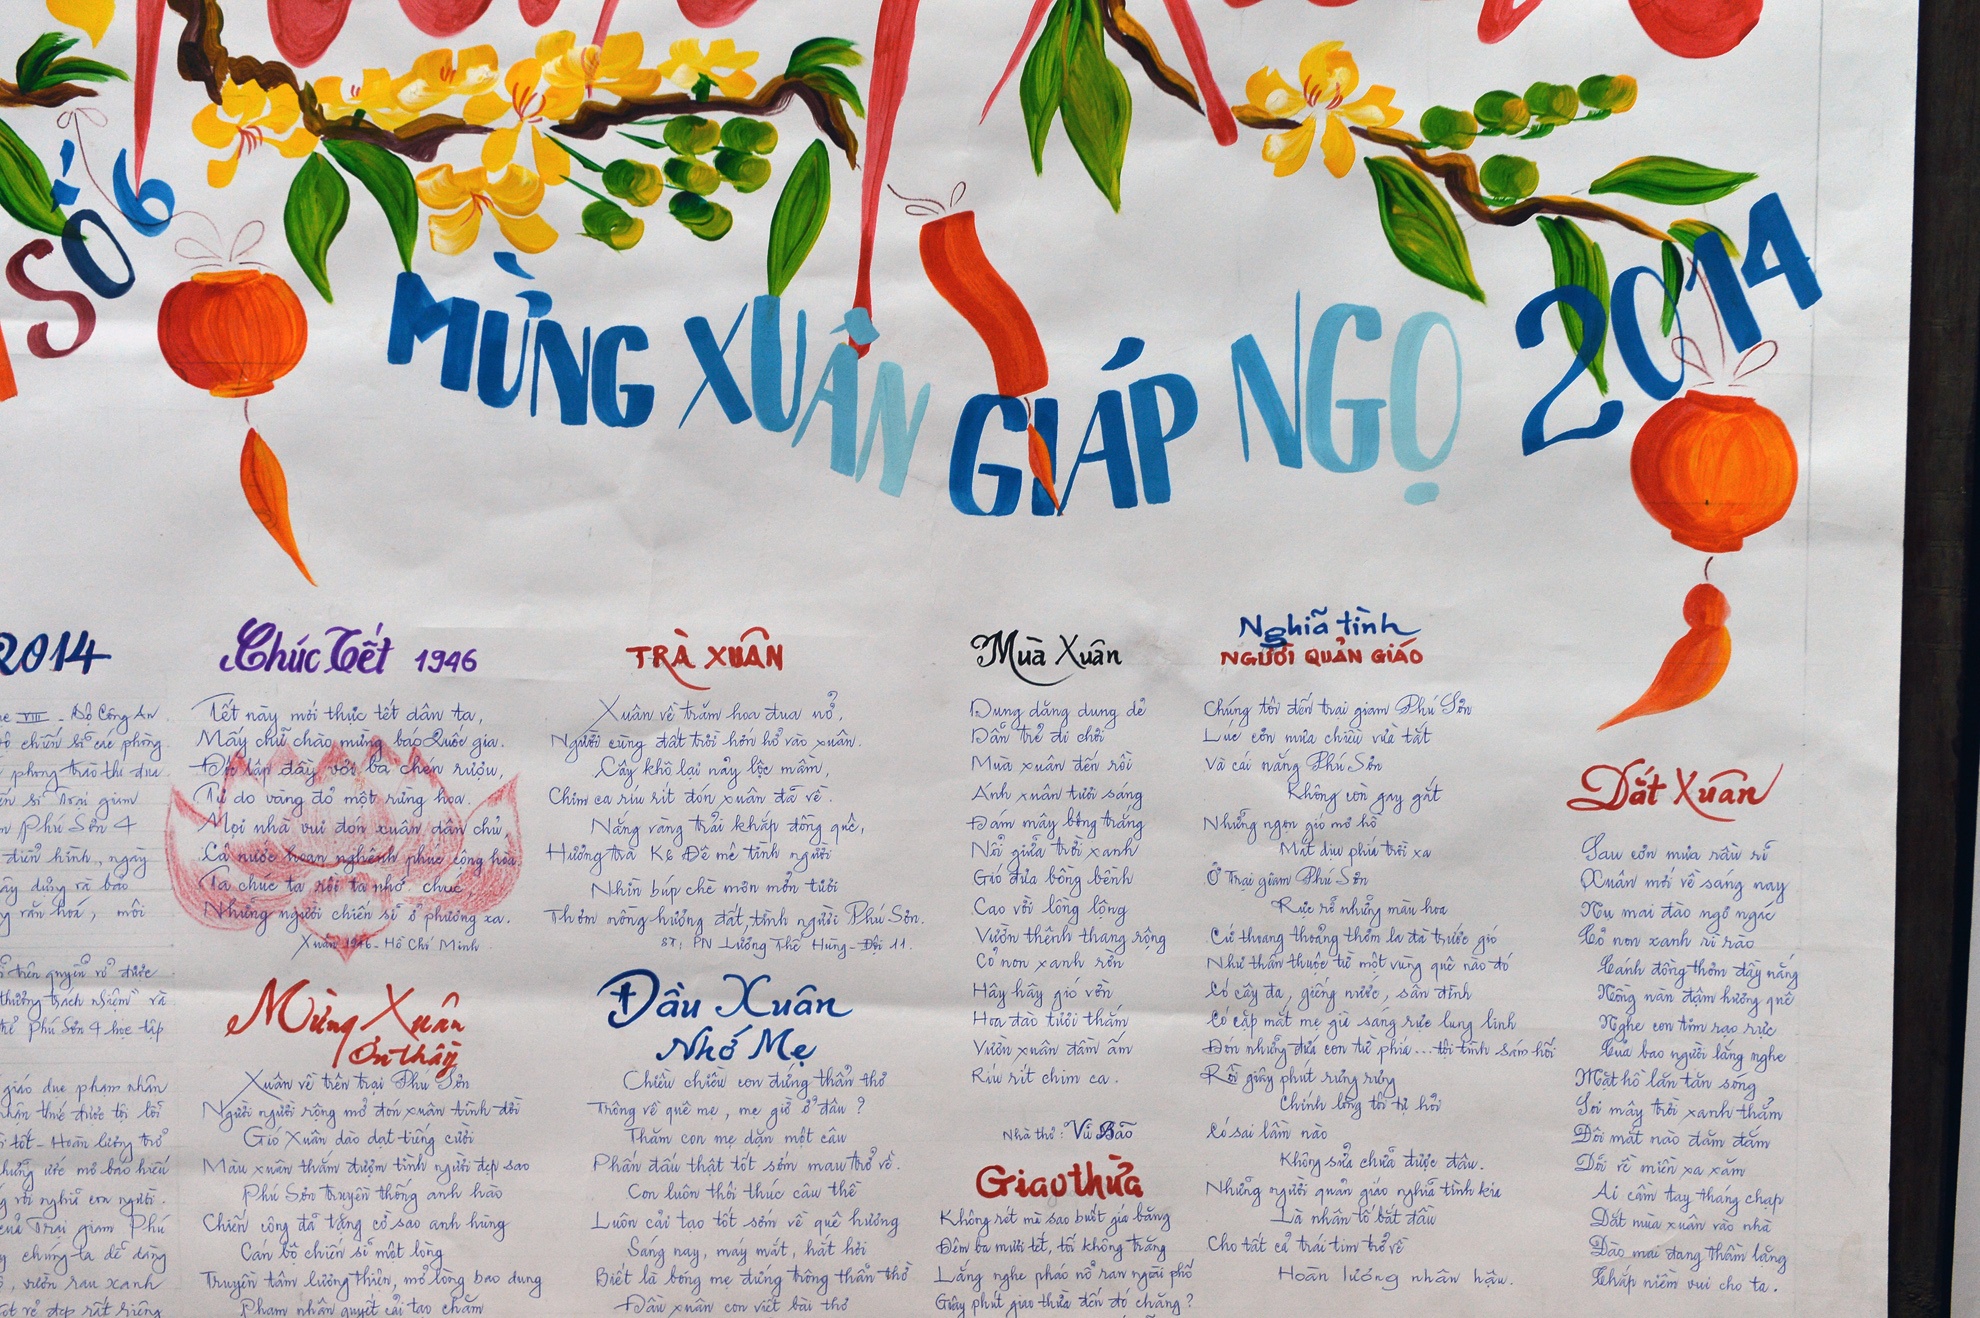 SỐ 6
MỪNG XUÂN GIÁP NGỌ 2014
2014
VIII - Bộ Công An
chiến sĩ các phòng
phong trào thi đua
sĩ Trại giam
Phú Sơn 4
điển hình, ngày
xây dựng và bảo
văn hoá, môi
trên quyển vở được
thưởng trách nhiệm và
Phú Sơn 4 học tập
giáo dục phạm nhân
nhận thức được tội lỗi
tốt - Hoàn lương trở
những ước mơ báo hiếu
nghĩ con người.
của Trại giam Phú
chúng ta dễ dàng
vườn rau xanh
vẻ đẹp rất riêng
Chúc Tết 1946
Tết này mới thực tết dân ta,
Mấy chữ chào mừng báo Quốc gia.
Độc lập đầy vơi ba chén rượu,
Tự do vàng đỏ một rừng hoa.
Mọi nhà vui đón xuân dân chủ,
Cả nước hoan nghênh phúc cộng hòa
Ta chúc ta rồi ta nhớ chúc,...
Những người chiến sĩ ở phương xa.
Xuân 1946 - Hồ Chí Minh.
Mừng Xuân
Ơn thầy
Xuân về trên trại Phú Sơn
Người người rộng mở đón xuân tình đời
Gió Xuân dào dạt tiếng cười
Màu xuân thắm đượm tình người đẹp sao
Phú Sơn truyền thống anh hào
Chiến công đã tặng cờ sao anh hùng
Cán bộ chiến sĩ một lòng
Truyền tâm lương thiện, mở lòng bao dung
Phạm nhân quyết cải tạo chăm
TRÀ XUÂN
Xuân về trăm hoa đua nở,
Người cùng đất trời hớn hở vào xuân.
Cây khô lại nảy lộc mầm,
Chim ca ríu rít đón xuân đã về.
Nắng vàng trải khắp đồng quê,
Hương trà K6 Đê mê tình người
Nhìn búp chè mơn mởn tươi
Thơm nồng hương đất, tình người Phú Sơn.
ST: PN Lương Thế Hùng - Đội 11.
Đầu Xuân
Nhớ Mẹ
Chiều chiều con đứng thẩn thơ
Trông về quê mẹ, mẹ giờ ở đâu?
Thăm con mẹ dặn một câu
Phấn đấu thật tốt sớm mau trở về.
Con luôn thôi thúc câu thề
Luôn cải tạo tốt sớm về quê hương
Sáng nay, máy mắt, hắt hơi
Biết là bóng mẹ đứng trông thẩn thờ
Đầu xuân con viết bài thơ
Mùa Xuân
Dung dăng dung dẻ
Dẫn trẻ đi chơi
Mùa xuân đến rồi
Ánh xuân tươi sáng
Đám mây bông trắng
Nổi giữa trời xanh
Gió đưa bồng bềnh
Cao vời lồng lộng
Vườn thênh thang rộng
Cỏ non xanh rờn
Hây hẩy gió vờn
Hoa đào tươi thắm
Vườn xuân đầm ấm
Ríu rít chim ca.
Nhà thơ: Vũ Bão
Giao thừa
Không rét mà sao buốt giá băng
Đêm ba mươi tết, tối không trăng
Lắng nghe pháo nổ ran ngoài phố
Giây phút giao thừa đến đó chăng?
Nghĩa tình
NGƯỜI QUẢN GIÁO
Chúng tôi đến trại giam Phú Sơn
Lúc cơn mưa chiều vừa tắt
Và cái nắng Phú Sơn
Không còn gay gắt
Những ngọn gió mơ hồ
Mát dịu phía trời xa
Ở Trại giam Phú Sơn
Rực rỡ những màu hoa
Cứ thoang thoảng thơm la đà trước gió
Như thân thuộc từ một vùng quê nào đó
Có cây đa, giếng nước, sân đình
Có cặp mắt mẹ già sáng rực lung linh
Đón những đứa con từ phía... tội tình sám hối
Rồi giây phút rưng rưng
Chính lòng tôi tự hỏi
Có sai lầm nào
Không sửa chữa được đâu.
Những người quản giáo nghĩa tình kia
Là nhân tố bắt đầu
Cho tất cả trái tim trở về
Hoàn lương nhân hậu.
Dắt Xuân
Sau cơn mưa rầu rĩ
Xuân mới về sáng nay
Nụ mai đào ngơ ngác
Cỏ non xanh rì rào
Cánh đồng thơm đầy nắng
Nồng nàn đậm hương quê
Nghe con tim rạo rực
Của bao người lắng nghe
Mặt hồ lăn tăn sóng
Soi mây trời xanh thẳm
Đôi mắt nào đăm đắm
Dõi về miền xa xăm
Ai cầm tay tháng chạp
Dắt mùa xuân vào nhà
Đào mai đang thầm lặng
Chắp niềm vui cho ta.